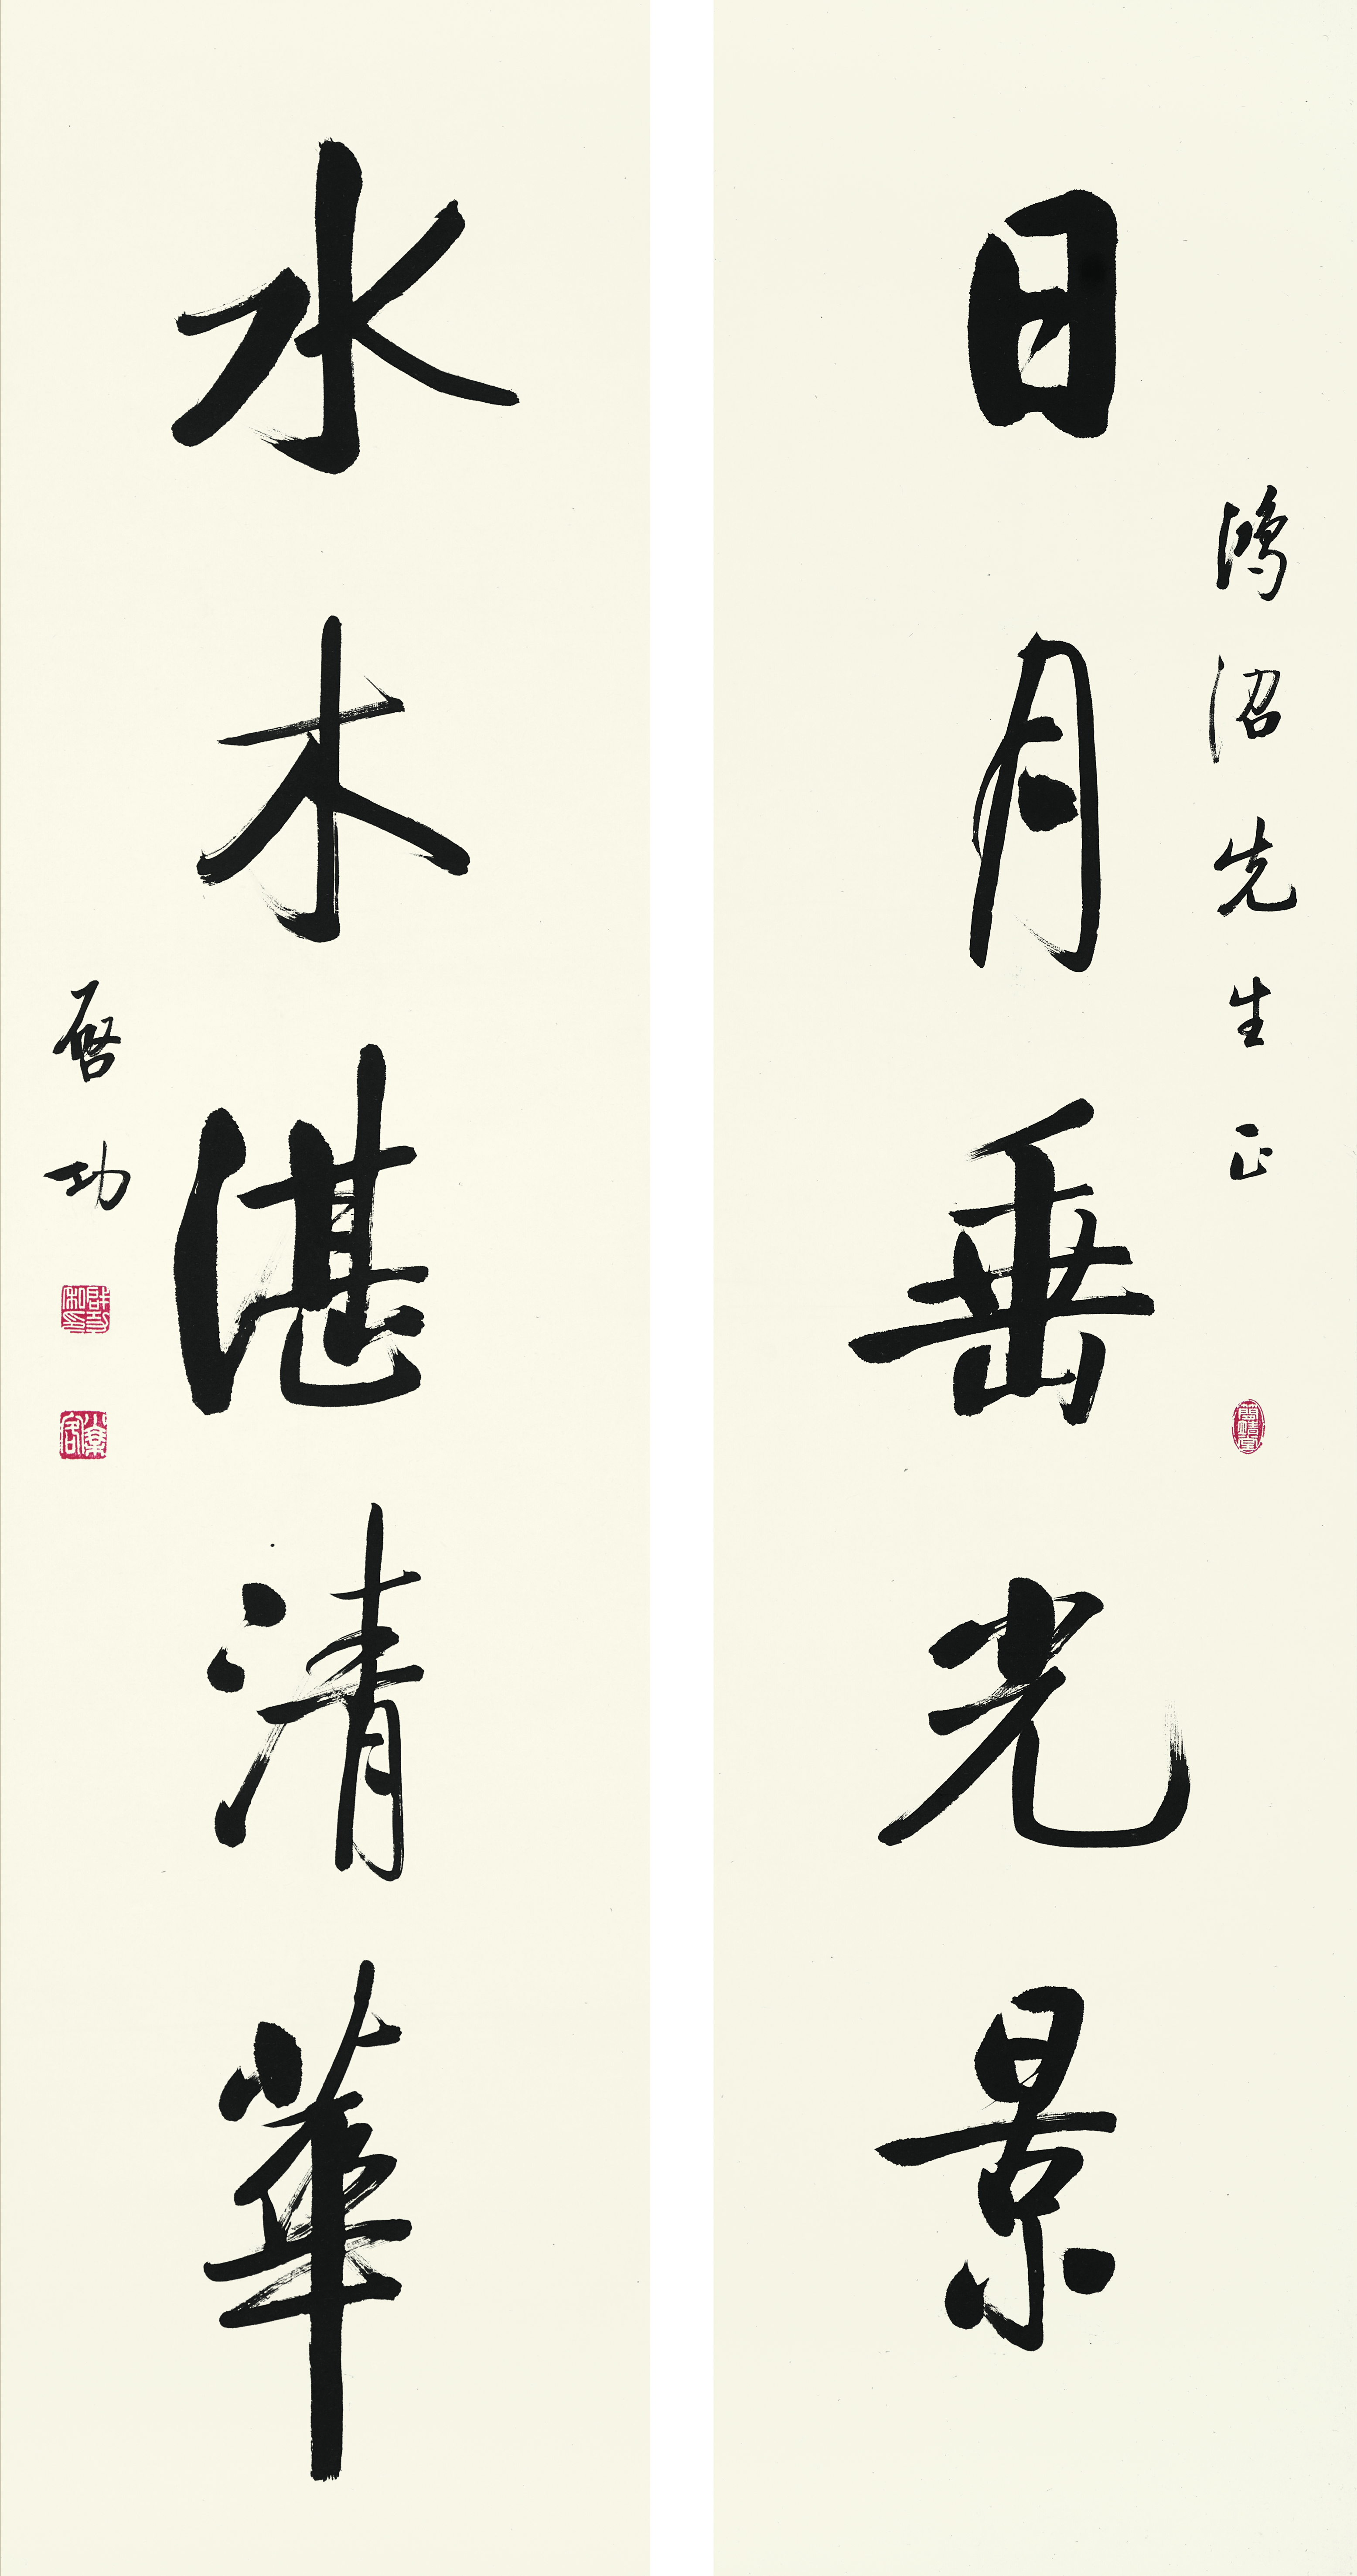 日月垂光景
鴻沼先生正
水木湛清華
启功